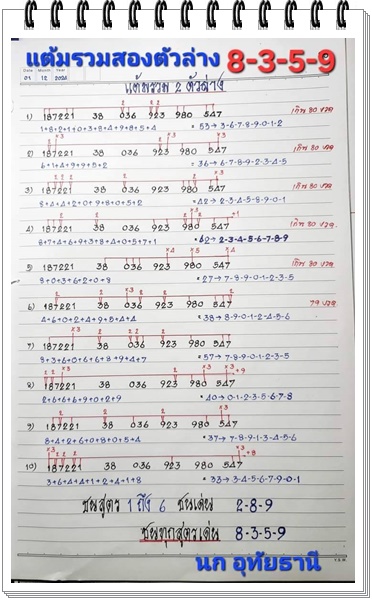 แต้มรวมสองตัวล่าง 8-3-5-9
Date Month Year
01 12 2024
แต้มรวม 2 ตัวล่าง
1) 187221 38 036 923 980 547 เกิน 80 งวด
1+8+2+1+0+3+8+4+9+8+5+4 = 53 → 3-6-7-8-9-0-1-2
2) 187221 38 036 923 980 547 เกิน 80 งวด
6+1+4+9+9+5+2 = 36 → 6-7-8-9-2-3-4-5
3) 187221 38 036 923 980 547 เกิน 80 งวด
8+4+4+2+0+9+8+0+5+2 = 42 → 2-3-4-5-8-9-0-1
4) 187221 38 036 923 980 547 +1 เกิน 80 งวด
8+7+4+6+9+3+8+4+0+5+7+1 = 62 → 2-3-4-5-6-7-8-9
5) 187221 38 036 923 980 547 เกิน 80 งวด
8+0+3+6+2+0+8 = 27 → 7-8-9-0-1-2-3-5
6) 187221 38 036 923 980 547 79 งวด
4+6+0+2+4+9+5+4+4 = 38 → 8-9-0-1-2-4-5-6
7) 187221 38 036 923 980 547
8+3+6+0+6+6+8+9+4+7 = 57 → 7-8-9-0-1-2-3-5
8) 187221 38 036 923 980 547 +9
2+6+6+6+9+0+2+9 = 40 → 0-1-2-3-5-6-7-8
9) 187221 38 036 923 980 547
8+4+2+6+0+8+0+5+4 = 37 → 7-8-9-1-3-4-5-6
10) 187221 38 036 923 980 547 +8
3+6+4+4+1+2+4+1+8 = 33 → 3-4-5-6-7-9-0-1
ชนสูตร 1 ถึง 6 ชนเด่น 2-8-9
ชนทุกสูตรเด่น 8-3-5-9
นก อุทัยธานี